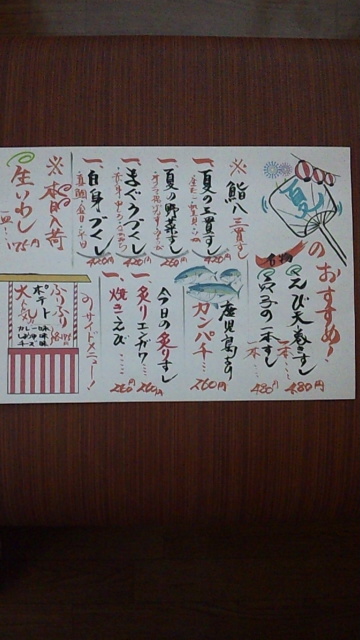 のおすすめ！
名物
えび天巻きすし
一本…480円
穴子の一本すし
一本…480円
※ 鮨八 三貫すし
一、夏の三貫すし
420円
一、夏の野菜すし
260円
一、まぐろづくし
420円
一、白身づくし
420円
鹿児島より
カンパチ…
260円
今日の炙りすし
一、炙りエンガワ…
260円
一、焼きえび……
260円
※ 本日入荷
生いわし
一皿…175円
のサイドメニュー！
ふりふり
ポテト
大人気！
カレー味